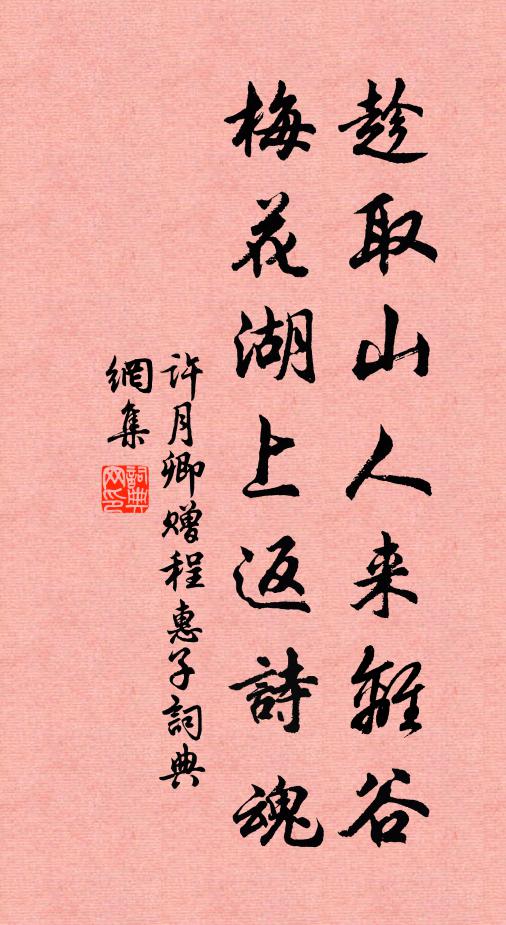 趁取山人来離谷
梅花湖上返詩魂
许月卿赠程惠子詞典
網集
詞典
网印